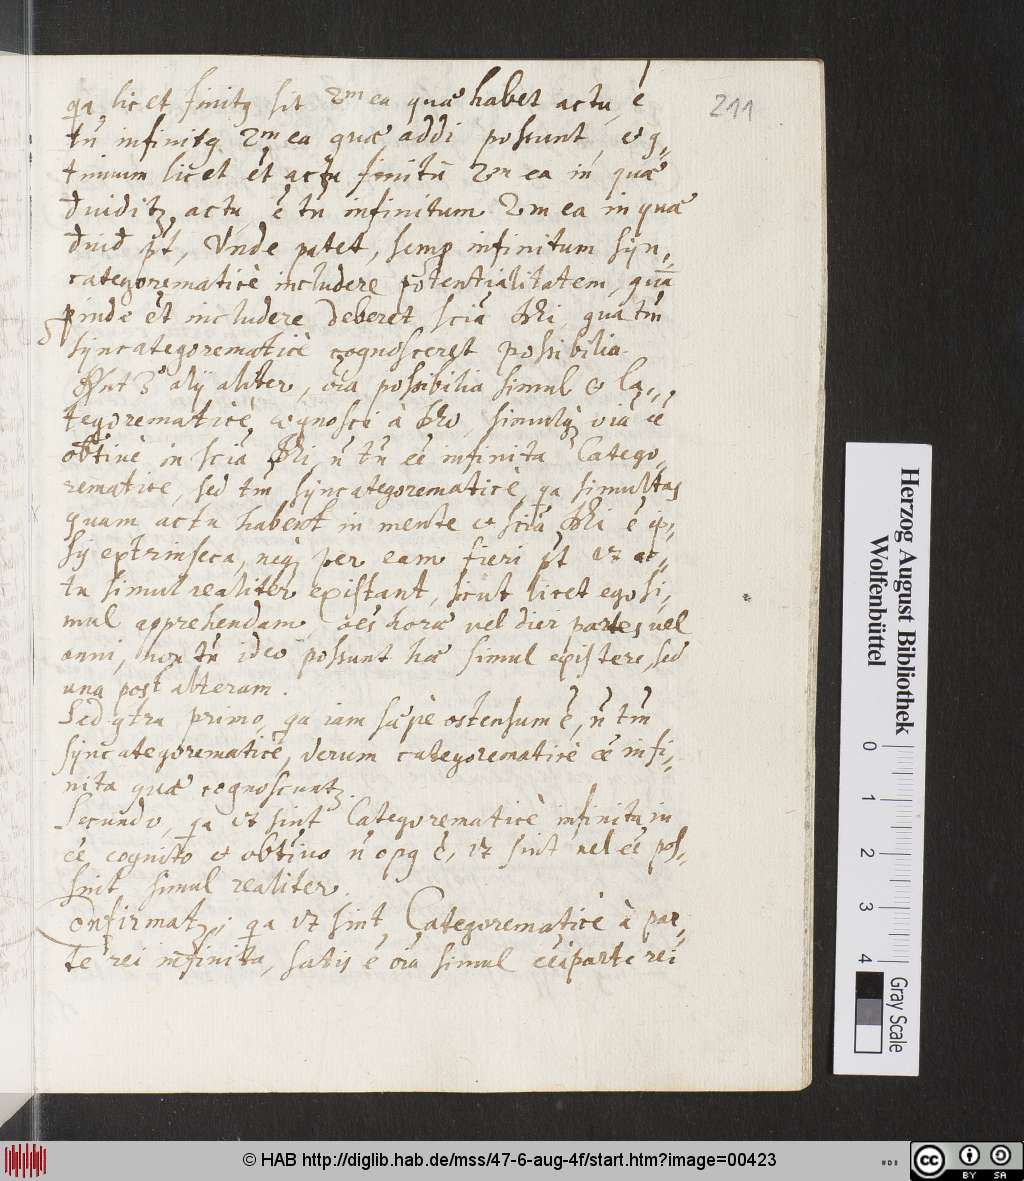 qa licet finitꝫ sit 2m ea quæ habet actu, é
211
tn̄ infinitꝗ 2m ea quæ addi possunt, et
tinuum licet ēt actu finitū 2m ea in quæ
dividitꝫ actu, é tn̄ infinitum 2m ea in quæ
divid pt, Unde patet, semp infinitum syn„
categorematicè includere potentialitatem, quā
pinde ēt includere deberet sciā Dei, qua tm̄
syncategorematicè cognosceret possibilia.
alij aliter, oīa possibilia simul et Ca„
tegorematicè cognosci à Deo, simulqꝫ oīa ēe
obtivè in sciā Dei, n̄ tn̄ ēe infinita Catego„
rematice, sed tm̄ syncategorematicè, qa simultas
quam actu habent in mente et sciā Dei é ip„
sis extrinseca, neqꝫ per eam fieri pt ut ac„
tu simul realiter existant, sicut licet ego si„
mul apprehendam oēs horæ vel diei partes vel
anni, non tn̄ ideo possunt hæ simul existere, sed
una post alteram.
Sed contra primo, qa iam sæpè ostensum é, n̄ tm̄
syncategorematicè, verum categorematicè ēe infi„
nita quæ cognoscuntꝫ.
Secundo, qa ut sint Categorematicè infinita in
ēe cognito et obtivo n̄ opꝗ é, ut sint vel ēe pos„
sint simul realiter.
Confirmatꝫ; qa ut sint Categorematicè à par„
te rei infinita, satis é oīa simul ēe à parte rei
Herzog August Bibliothek
Wolfenbüttel
0 1 2 3 4
Gray Scale
© HAB http://diglib.hab.de/mss/47-6-aug-4f/start.htm?image=00423
cc BY SA